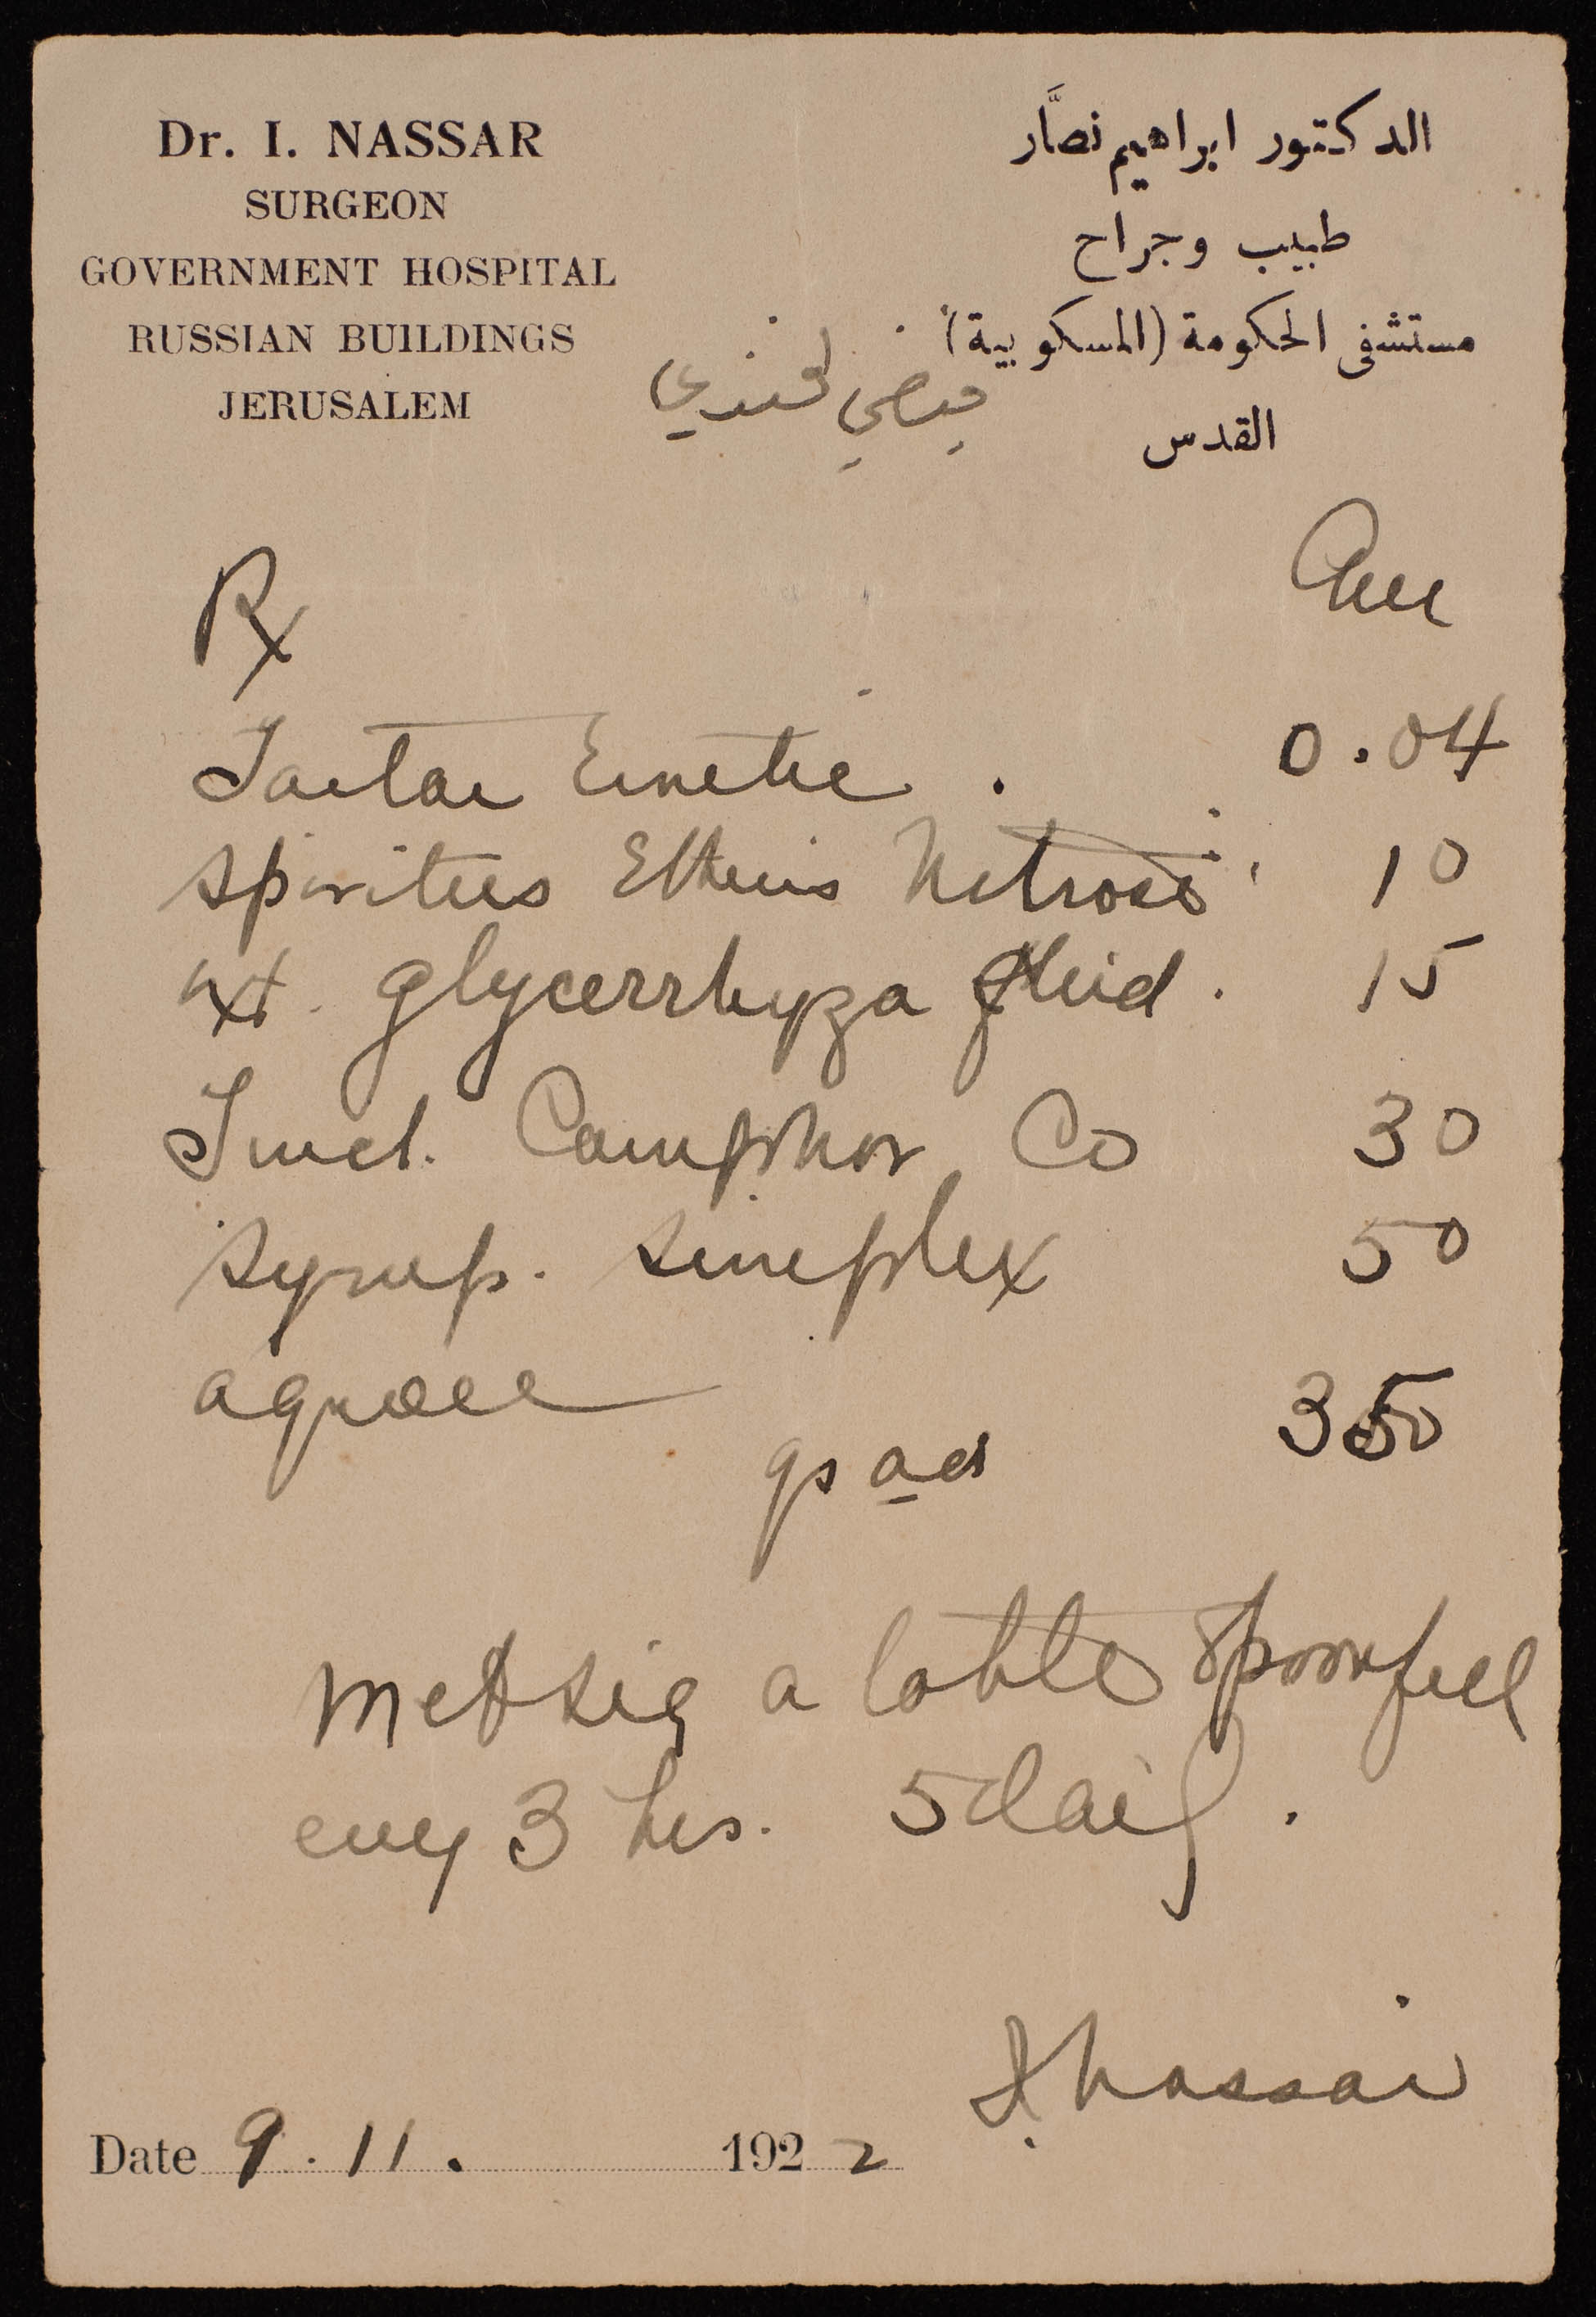 Dr. I. NASSAR
SURGEON
GOVERNMENT HOSPITAL
RUSSIAN BUILDINGS
JERUSALEM
الدكتور ابراهيم نصَّار
طبيب وجراح
مستشفى الحكومة (المسكوبية)
القدس
افندي
Rx
Tartar Emetic . 0.04
Spiritus Etheris Nitrosi 10
Ext. glycerrhyza fluid . 15
Tinct. Camphor Co 30
Syrup. Simplex 50
aquae
qs ad 350
Mft Sig a table spoonful
every 3 hrs. 5 daily.
I Nassar
Date 9.11. 1922